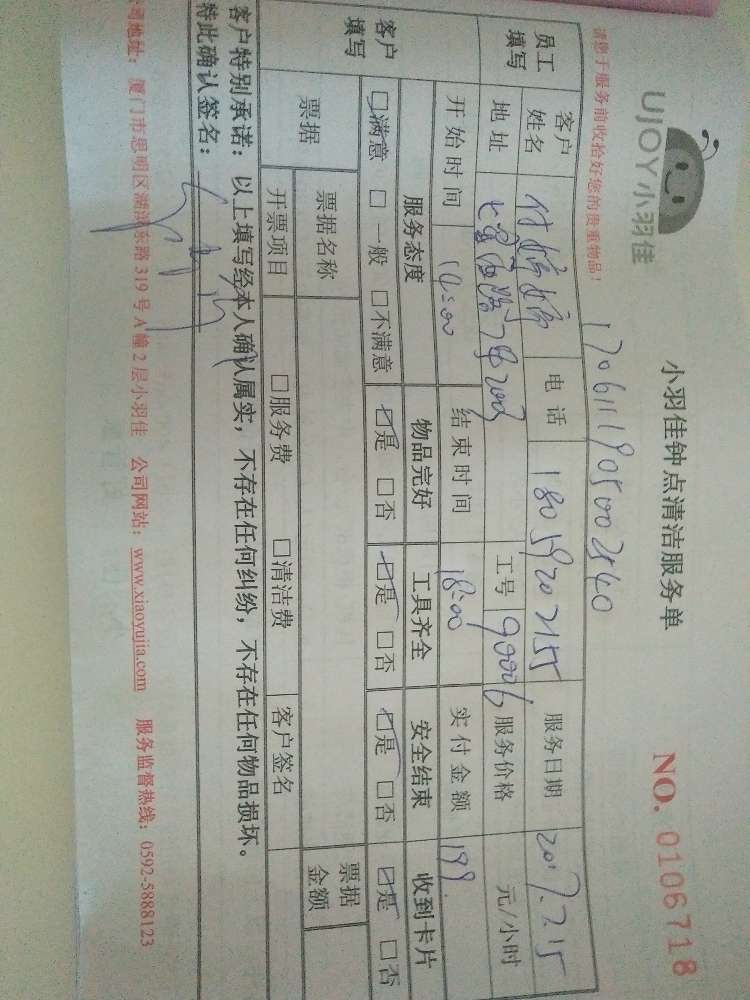 UJOY小羽佳
小羽佳钟点清洁服务单
NO. 0106718
请您于服务前收拾好您的贵重物品！
1706111905002540
员工填写 客户姓名 付婷婷 电话 18059202155 服务日期 2017.2.15
地址 工号 90006 服务价格 元/小时
开始时间 14:00 结束时间 18:00 实付金额 199.
客户填写 服务态度 物品完好 工具齐全 安全结束 收到卡片
☑满意 □一般 □不满意 ☑是 □否 ☑是 □否 ☑是 □否 ☑是 □否
票据 票据名称 票据金额
开票项目 □服务费 □清洁费 客户签名
客户特别承诺：以上填写经本人确认属实，不存在任何纠纷，不存在任何物品损坏。
特此确认签名：
公司地址：厦门市思明区湖滨东路319号A幢2层小羽佳 公司网站：www.xiaoyujia.com 服务监督热线：0592-5888123